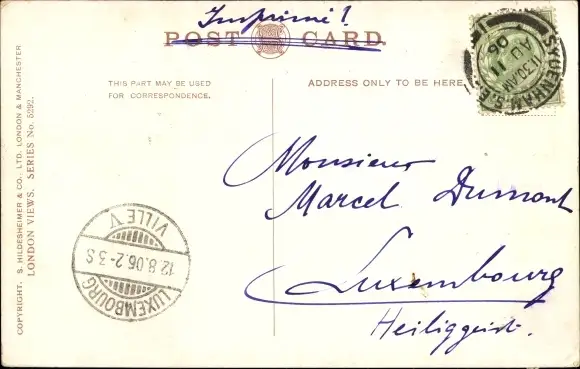 Imprimé!
POST CARD.
THIS PART MAY BE USED
FOR CORRESPONDENCE.
ADDRESS ONLY TO BE HERE.
SYDENHAM S.E.
11.30 AM
AU 11
06
Monsieur
Marcel Dumont
Luxembourg
Heiliggeist.
LUXEMBOURG
12.8.06.2-3 S
VILLE V
COPYRIGHT. S. HILDESHEIMER & CO., LTD. LONDON & MANCHESTER.
LONDON VIEWS. SERIES No. 5292.